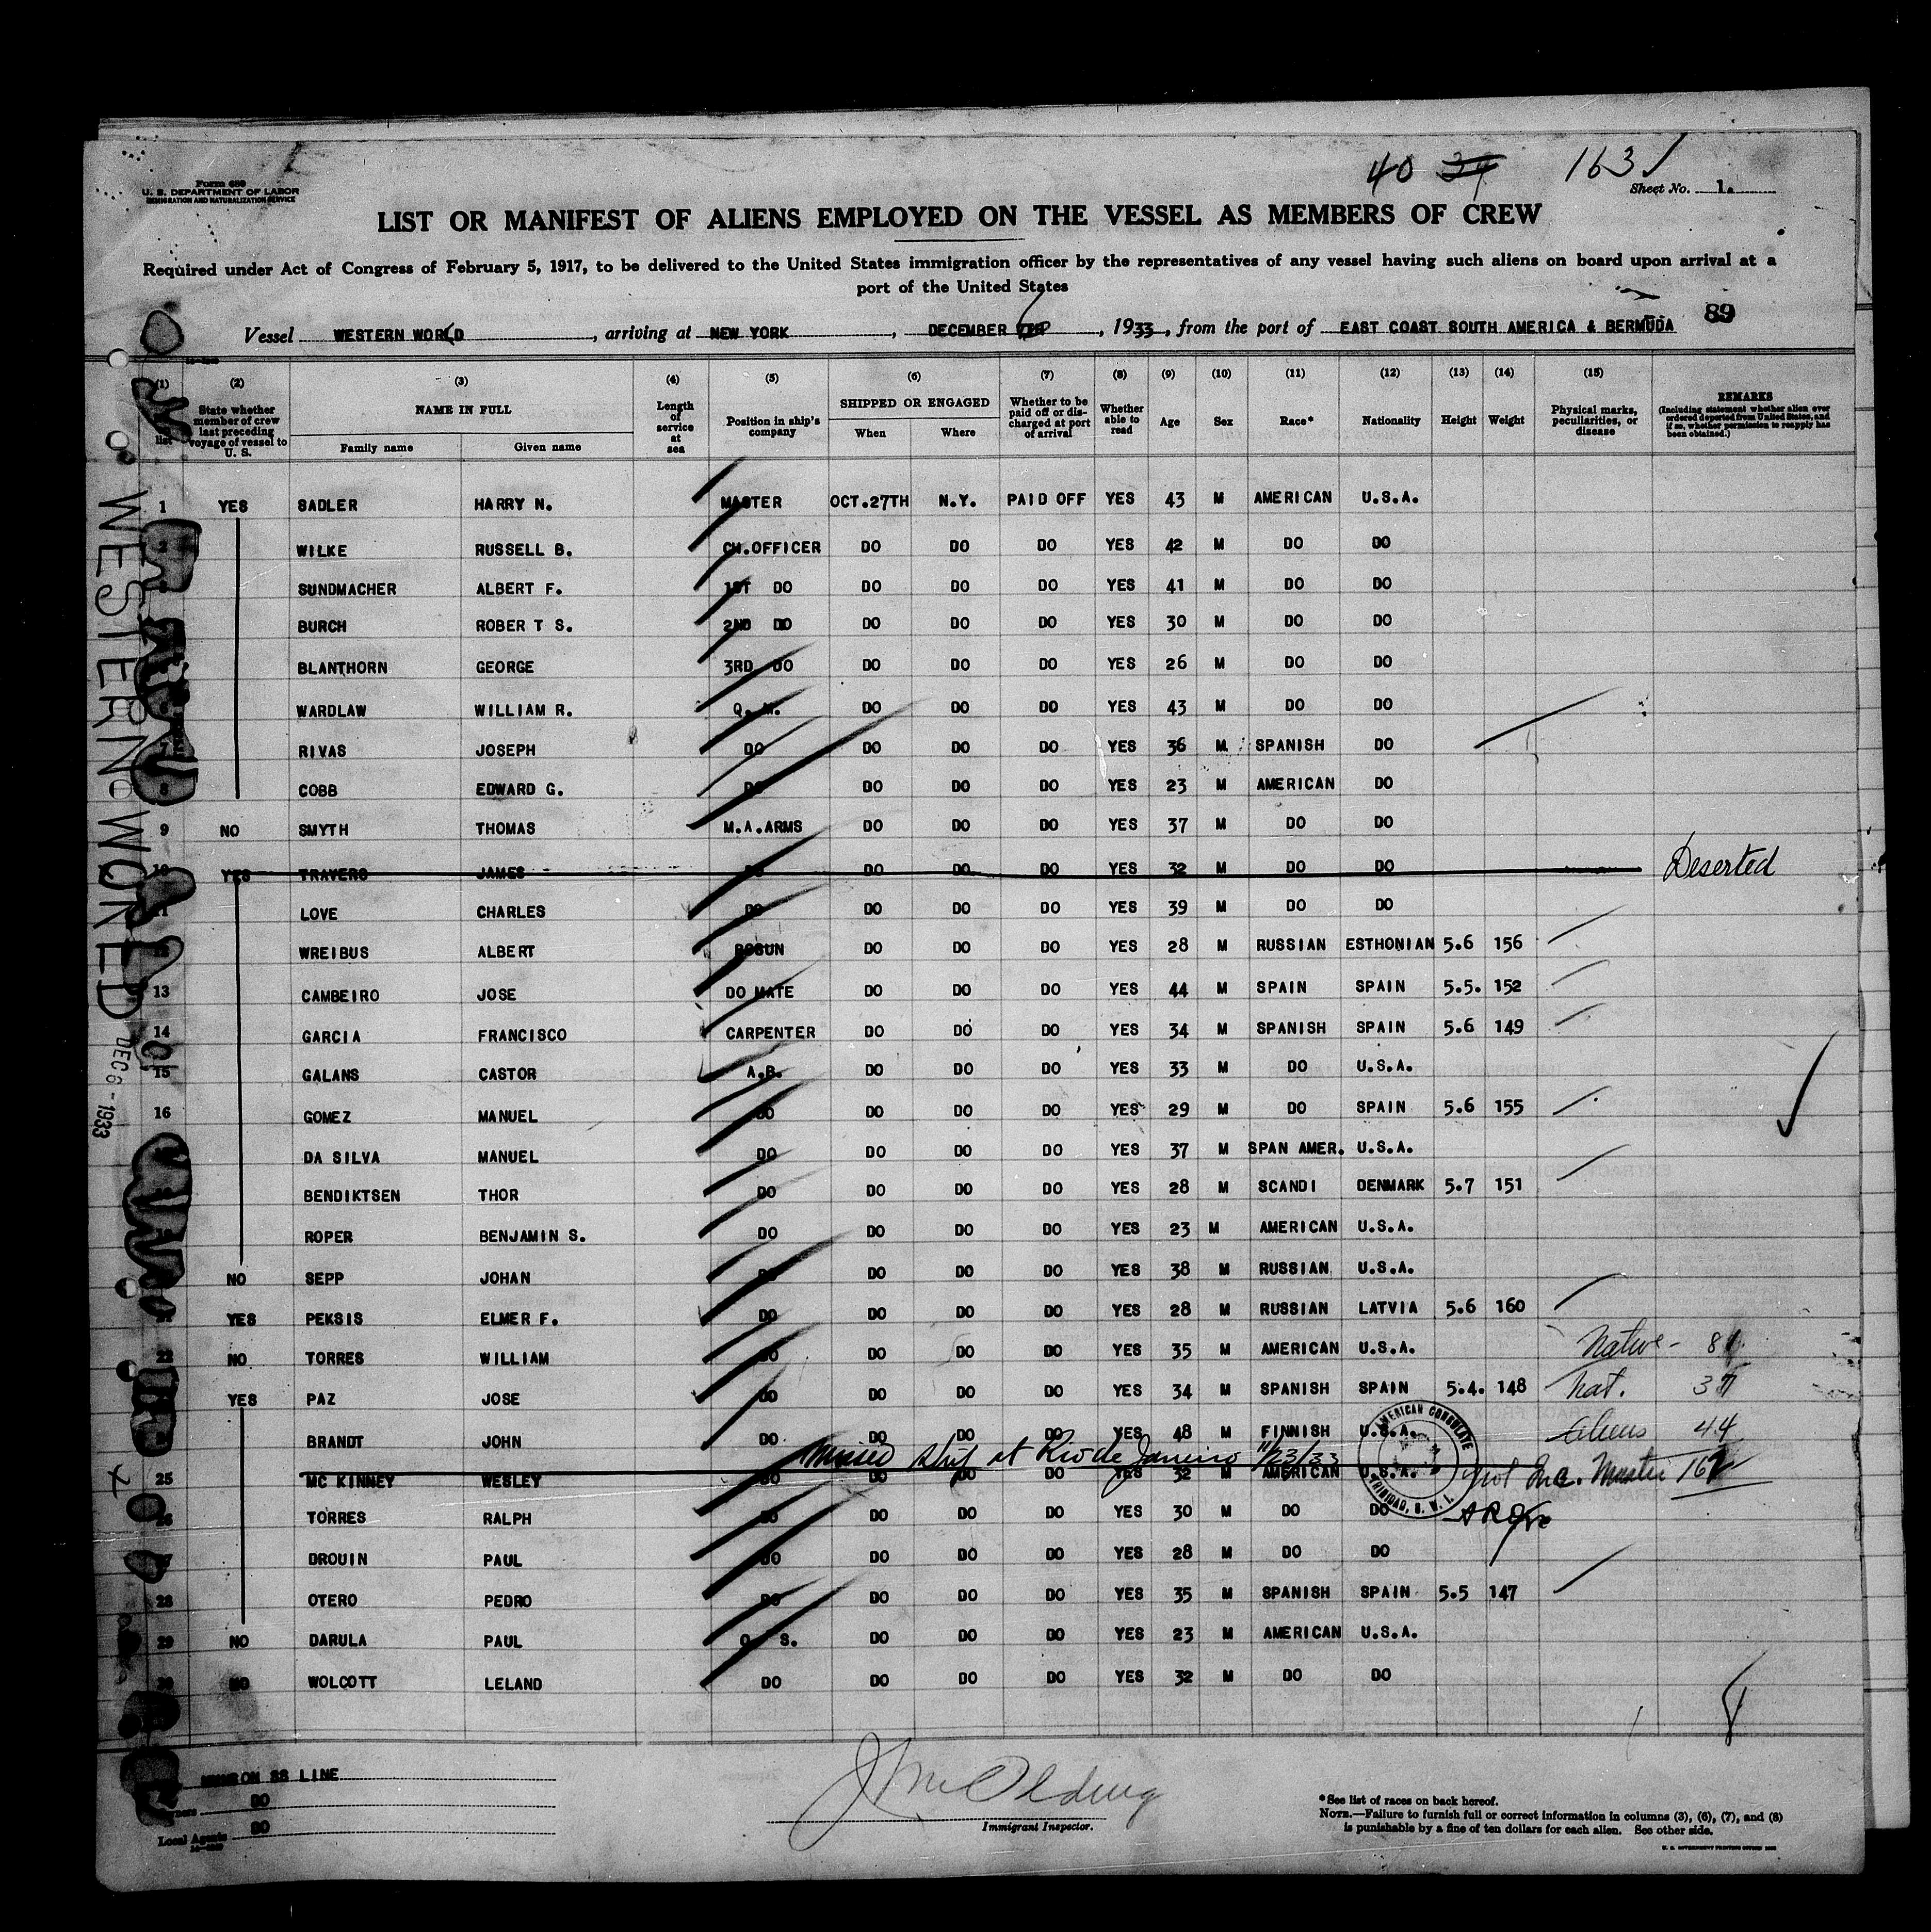 40 39 163
Form 689
U. S. DEPARTMENT OF LABOR
IMMIGRATION AND NATURALIZATION SERVICE
Sheet No. 1.
LIST OR MANIFEST OF ALIENS EMPLOYED ON THE VESSEL AS MEMBERS OF CREW
Required under Act of Congress of February 5, 1917, to be delivered to the United States immigration officer by the representatives of any vessel having such aliens on board upon arrival at a
port of the United States
89
Vessel WESTERN WORLD, arriving at NEW YORK, DECEMBER 6, 1933, from the port of EAST COAST SOUTH AMERICA & BERMUDA
(1) (2) (3) (4) (5) (6) (7) (8) (9) (10) (11) (12) (13) (14) (15)
list State whether member of crew last preceding voyage of vessel to U. S. NAME IN FULL Family name Given name Length of service at sea Position in ship's company SHIPPED OR ENGAGED When Where Whether to be paid off or discharged at port of arrival Whether able to read Age Sex Race* Nationality Height Weight Physical marks, peculiarities, or disease REMARKS (Including statement whether alien ever ordered deported from United States, and if so, whether permission to reapply has been obtained.)
1 YES SADLER HARRY N. MASTER OCT.27TH N.Y. PAID OFF YES 43 M AMERICAN U.S.A.
2 WILKE RUSSELL B. CH.OFFICER DO DO DO YES 42 M DO DO
SUNDMACHER ALBERT F. 1ST DO DO DO DO YES 41 M DO DO
BURCH ROBER T S. 2ND DO DO DO DO YES 30 M DO DO
BLANTHORN GEORGE 3RD DO DO DO DO YES 26 M DO DO
WARDLAW WILLIAM R. Q. M. DO DO DO YES 43 M DO DO
7 RIVAS JOSEPH DO DO DO DO YES 36 M SPANISH DO
8 COBB EDWARD G. DO DO DO DO YES 23 M AMERICAN DO
9 NO SMYTH THOMAS M.A.ARMS DO DO DO YES 37 M DO DO
10 YES TRAVERS JAMES DO DO DO DO YES 32 M DO DO Deserted
11 LOVE CHARLES DO DO DO DO YES 39 M DO DO
12 WREIBUS ALBERT BOSUN DO DO DO YES 28 M RUSSIAN ESTHONIAN 5.6 156
13 CAMBEIRO JOSE DO MATE DO DO DO YES 44 M SPAIN SPAIN 5.5. 152
14 GARCIA FRANCISCO CARPENTER DO DO DO YES 34 M SPANISH SPAIN 5.6 149
15 GALANS CASTOR A.B. DO DO DO YES 33 M DO U.S.A.
16 GOMEZ MANUEL DO DO DO DO YES 29 M DO SPAIN 5.6 155
DA SILVA MANUEL DO DO DO DO YES 37 M SPAN AMER. U.S.A.
BENDIKTSEN THOR DO DO DO DO YES 28 M SCANDI DENMARK 5.7 151
ROPER BENJAMIN S. DO DO DO DO YES 23 M AMERICAN U.S.A.
NO SEPP JOHAN DO DO DO DO YES 38 M RUSSIAN U.S.A.
YES PEKSIS ELMER F. DO DO DO DO YES 28 M RUSSIAN LATVIA 5.6 160
22 NO TORRES WILLIAM DO DO DO DO YES 35 M AMERICAN U.S.A. Native - 81
YES PAZ JOSE DO DO DO DO YES 34 M SPANISH SPAIN 5.4. 148 Nat. 37
BRANDT JOHN DO DO DO DO YES 48 M FINNISH U.S.A. Aliens 44
missed ship at Rio de Janeiro 11/23/33
25 MC KINNEY WESLEY DO DO DO DO YES 32 M AMERICAN U.S.A. not Inc. Master 162
26 TORRES RALPH DO DO DO DO YES 30 M DO DO
27 DROUIN PAUL DO DO DO DO YES 28 M DO DO
28 OTERO PEDRO DO DO DO DO YES 35 M SPANISH SPAIN 5.5 147
29 NO DARULA PAUL O. S. DO DO DO YES 23 M AMERICAN U.S.A.
30 NO WOLCOTT LELAND DO DO DO DO YES 32 M DO DO
AMERICAN CONSULATE
TRINIDAD, B. W. I.
WESTERN WORLD
DEC 6 - 1933
MUNRON SS LINE
DO
Local Agents DO
Immigrant Inspector.
*See list of races on back hereof.
NOTE.—Failure to furnish full or correct information in columns (3), (6), (7), and (8)
is punishable by a fine of ten dollars for each alien. See other side.